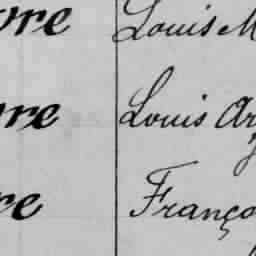 vre Louis M
vre Louis Ar
re Franço